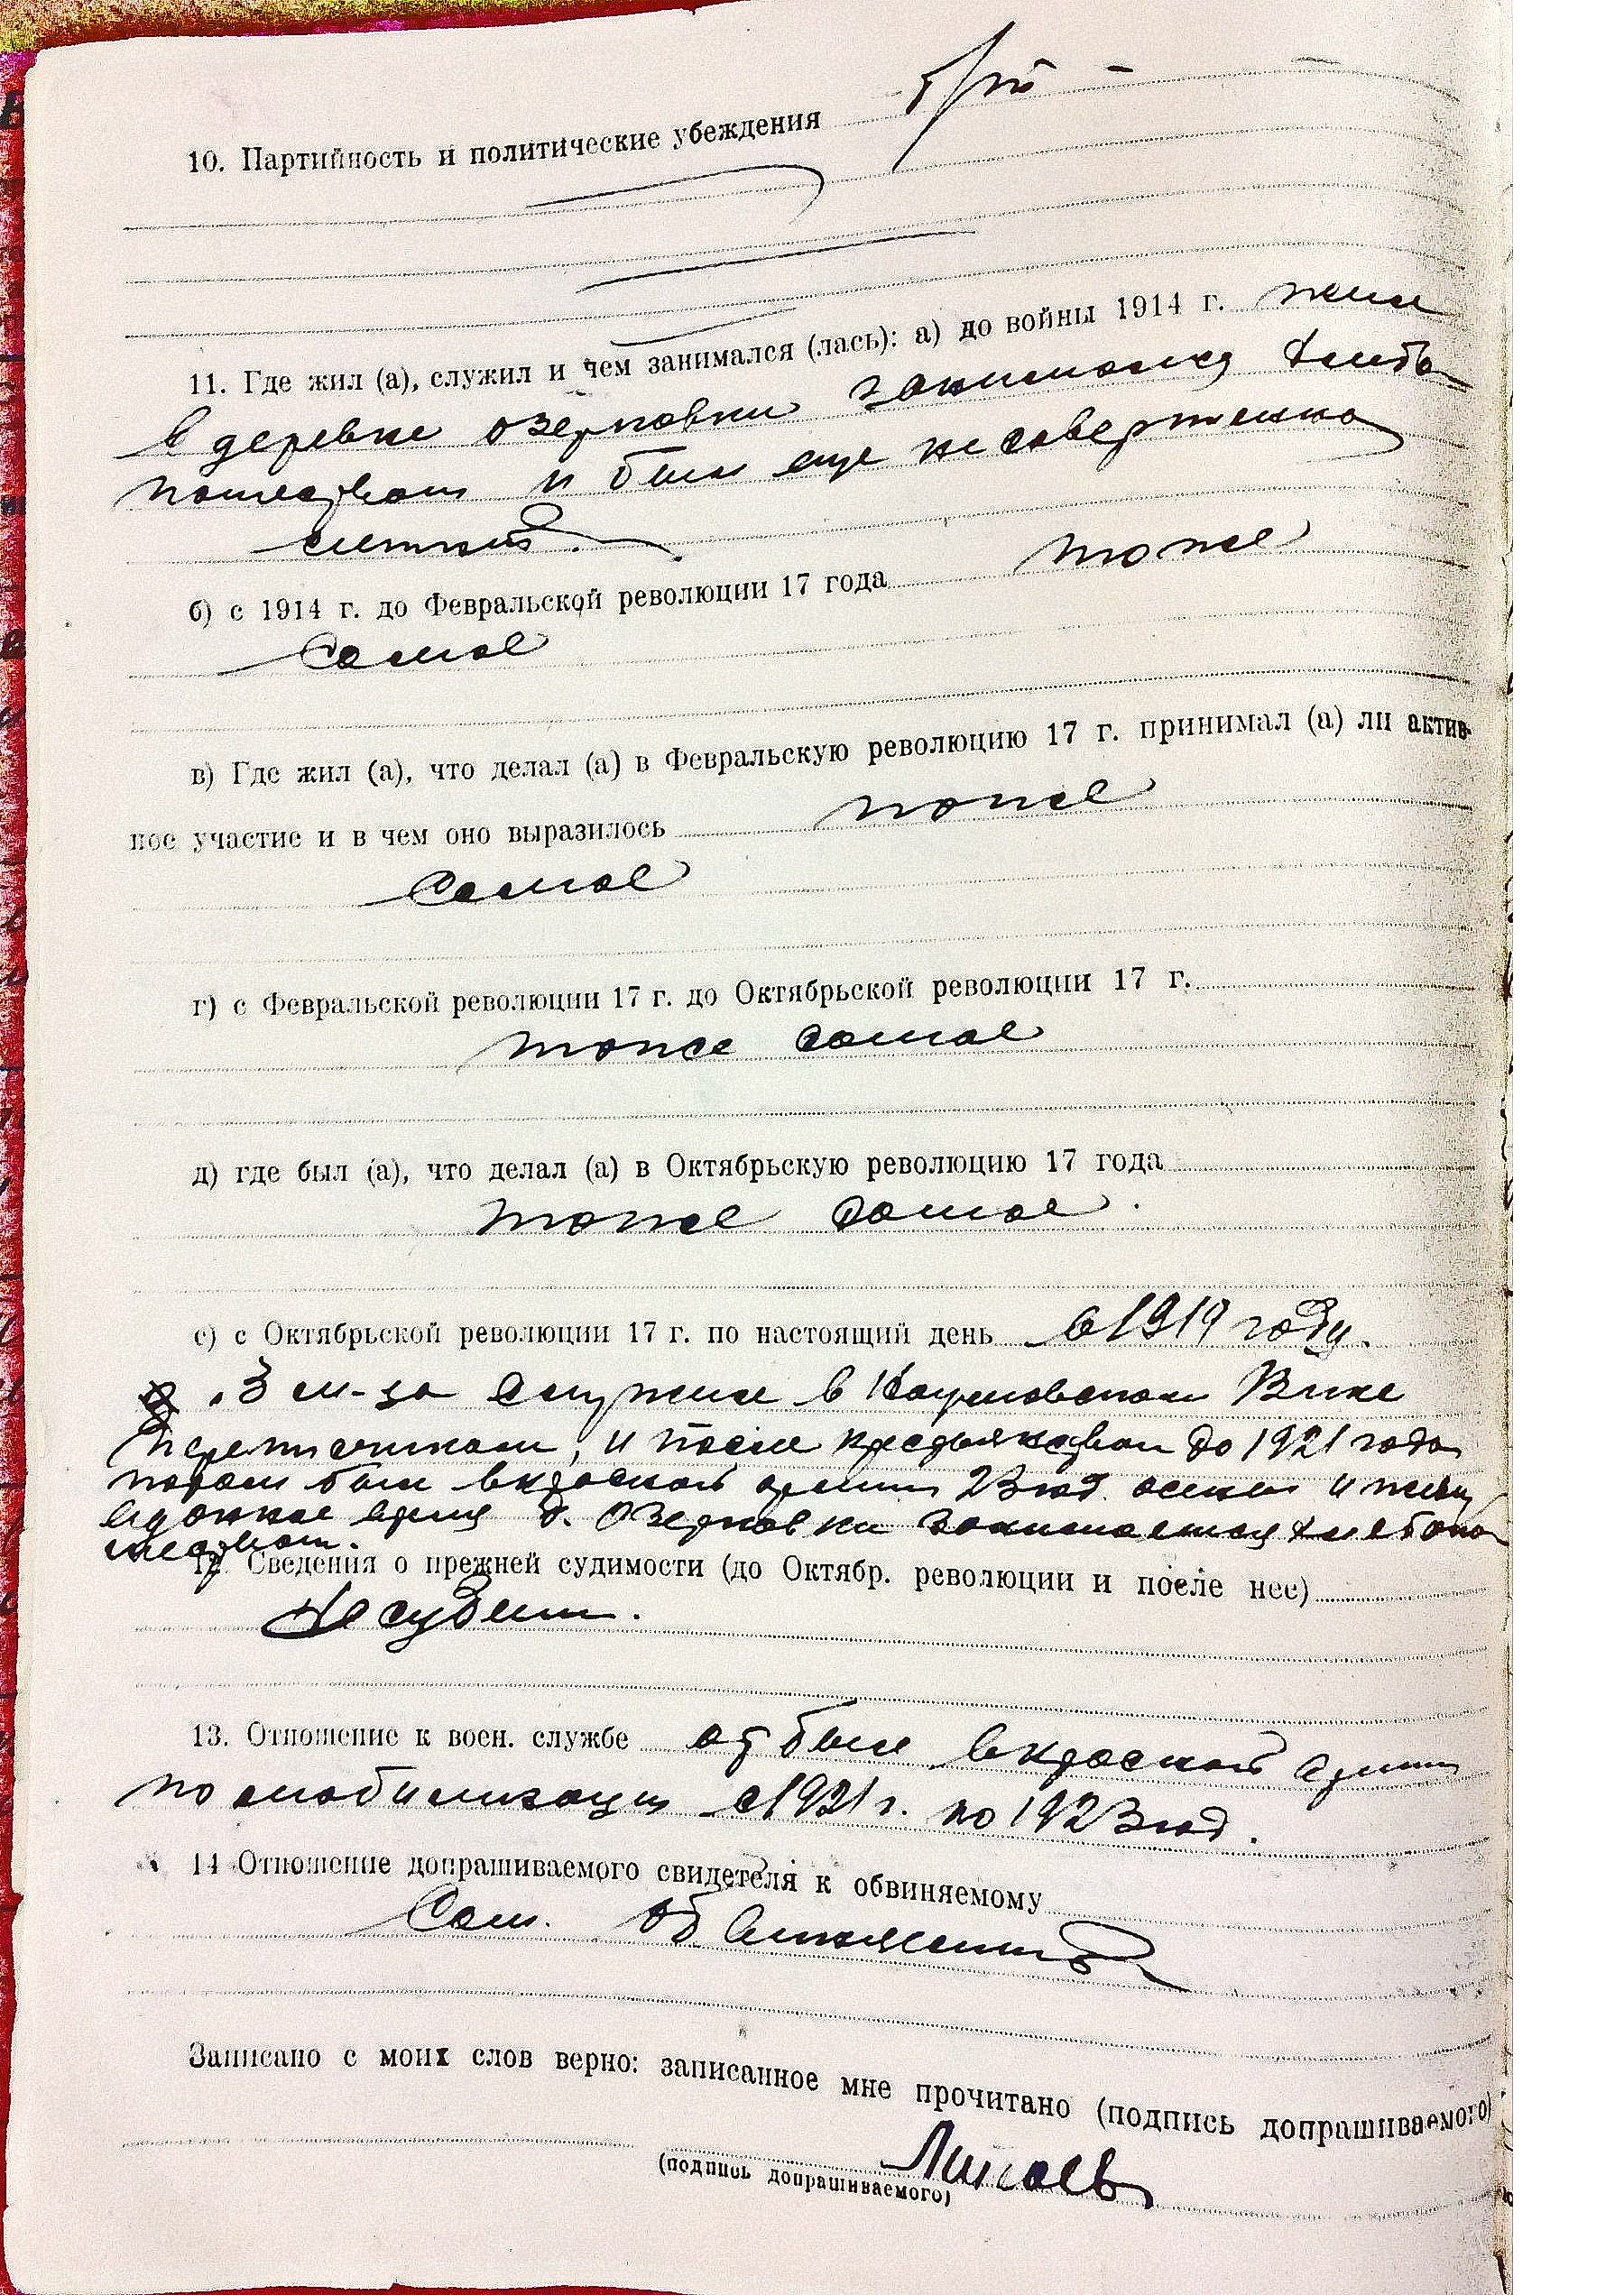 10. Партийность и политические убеждения б/п
11. Где жил (а), служил и чем занимался (лась): а) до войны 1914 г. жил
в деревне озерновки занимался хлебо
пашеством и был еще не совершенно
летний.
б) с 1914 г. до Февральской революции 17 года тоже
самое
в) Где жил (а), что делал (а) в Февральскую революцию 17 г. принимал (а) ли актив-
ное участие и в чем оно выразилось тоже
самое
г) с Февральской революции 17 г. до Октябрьской революции 17 г.
тоже самое
д) где был (а), что делал (а) в Октябрьскую революцию 17 года
тоже самое.
е) с Октябрьской революции 17 г. по настоящий день в 1919 году.
3 м-ца служил в Вике
Переписчиком, и после крестьянствовал до 1921 года
потом был в красной армии 23 год. осенью и
время д. Озерновки занимается хлебопа
шеством.
12. Сведения о прежней судимости (до Октябр. революции и после нее)
Не судим.
13. Отношение к воен. службе отбыл в красной армии
по мобилизации с 1921 г. по 1923 год.
14 Отношение допрашиваемого свидетеля к обвиняемому
Сам. обвиняемый
Записано с моих слов верно: записанное мне прочитано (подпись допрашиваемого)
(подпись допрашиваемого)